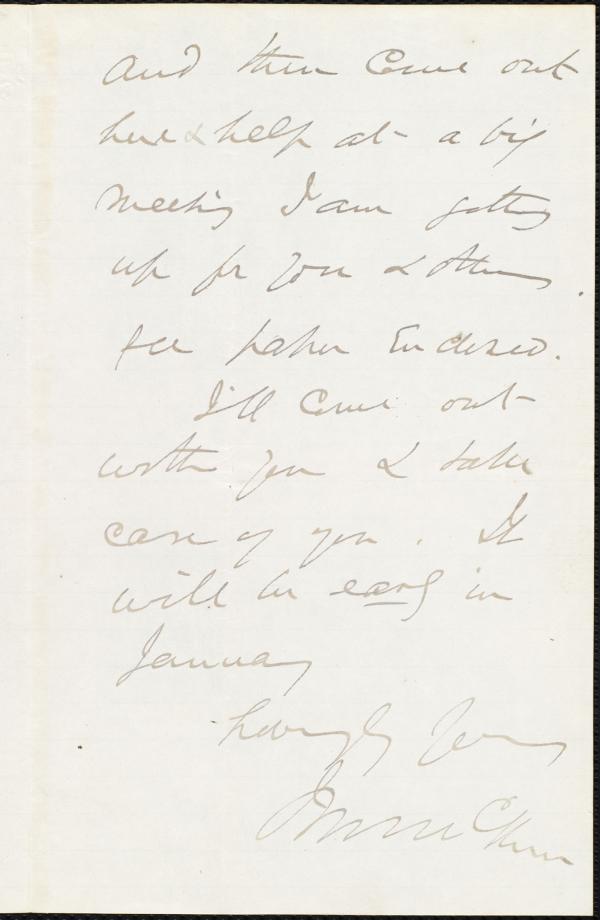 and then come out
here & help at a big
meeting I am getting
up for you & others.
see paper Enclosed.
I'll come out
with you & take
care of you. It
will be early in
January
Lovingly Yours